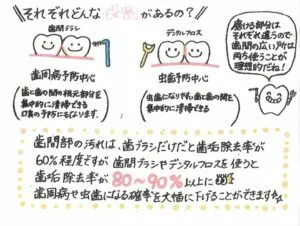 それぞれどんな役割があるの？
歯間ブラシ
デンタルフロス
歯周病予防中心
虫歯予防中心
歯と歯の間の根元部分を
集中的に清掃できる
口臭の予防にもなります。
虫歯になりやすい歯と歯の間を
集中的に清掃できる
磨ける部分は
それぞれ違うので
歯間の広い所は
両方使うことが
理想的だね！
歯間部の汚れは、歯ブラシだけだと歯垢除去率が
60％程度ですが 歯間ブラシやデンタルフロスを使うと
歯垢除去率が 80～90％以上に
歯周病や虫歯になる確率を大幅に下げることができます